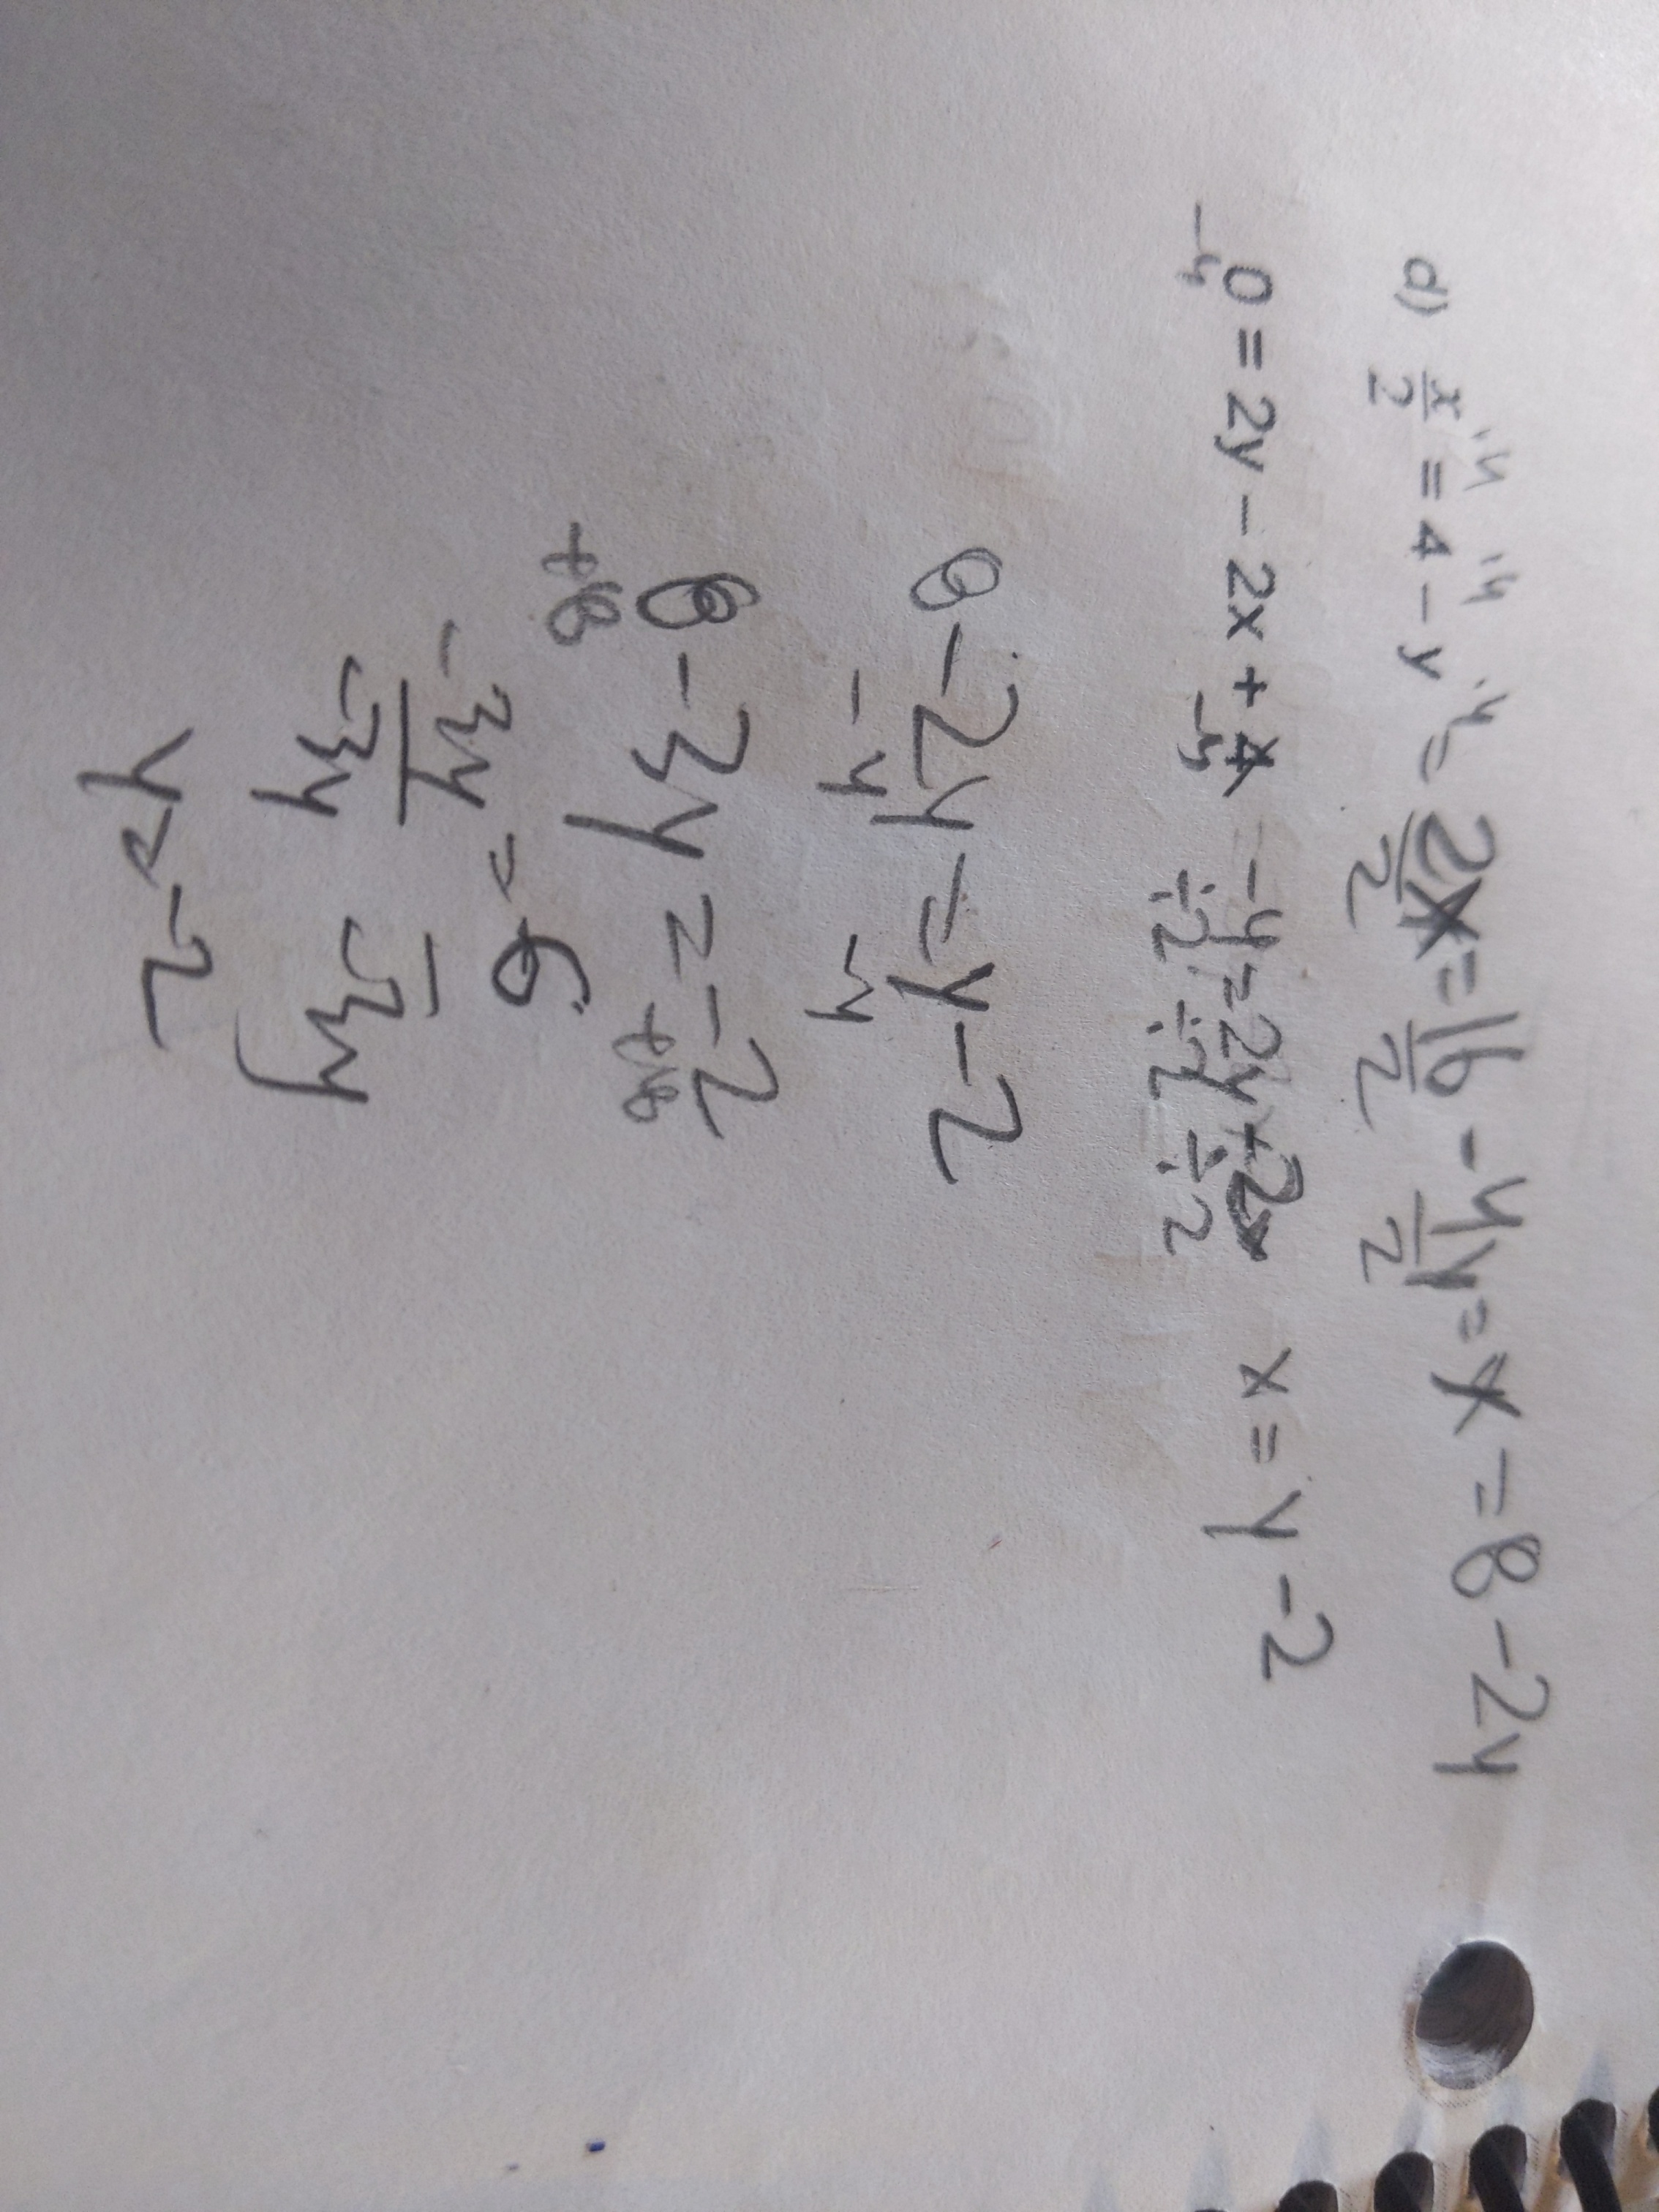 d) x/2 = 4 - y = 2x/2 = 16/2 - 4y/2 = x = 8 - 2y
·4 ·4 ·4
0 = 2y - 2x + 4 -4 = 2y - 2x x = y - 2
-4 -4 ÷2 ÷2 ÷2
8 - 2y = y - 2
-y -y
8 - 3y = -2
+8 +8
-3y = 6
-3y -3y
y = -2